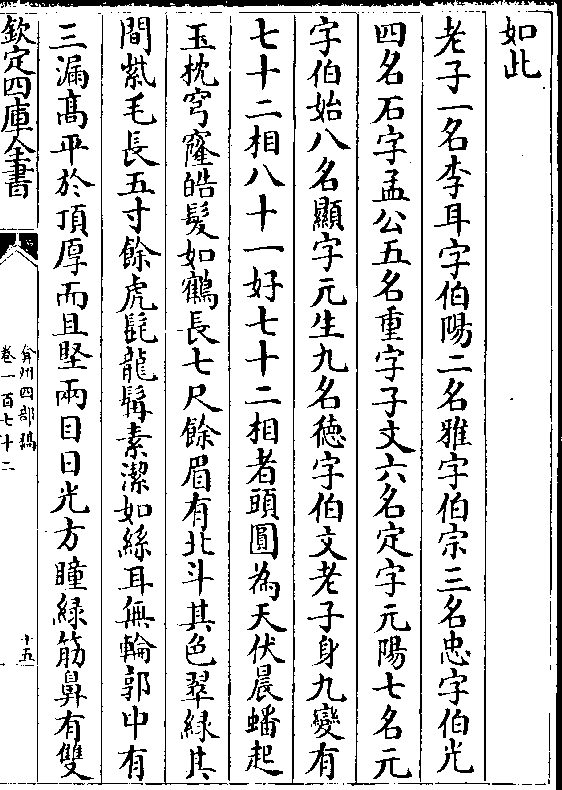 如此
老子一名李耳字伯陽二名雅字伯宗三名忠字伯光
四名石字孟公五名重字子文六名定字元陽七名元
字伯始八名顯字元生九名徳字伯文老子身九變有
七十二相八十一好七十二相者頭圓為天伏晨蟠起
玉枕穹窿皓髮如鶴長七尺餘眉有北斗其色翠緑其
間紫毛長五寸餘虎髭龍髯素潔如絲耳無輪郭中有
三漏髙平於頂厚而且堅兩目日光方瞳緑筋鼻有雙
欽定四庫全書
弇州四部稿
卷一百七十二
十五